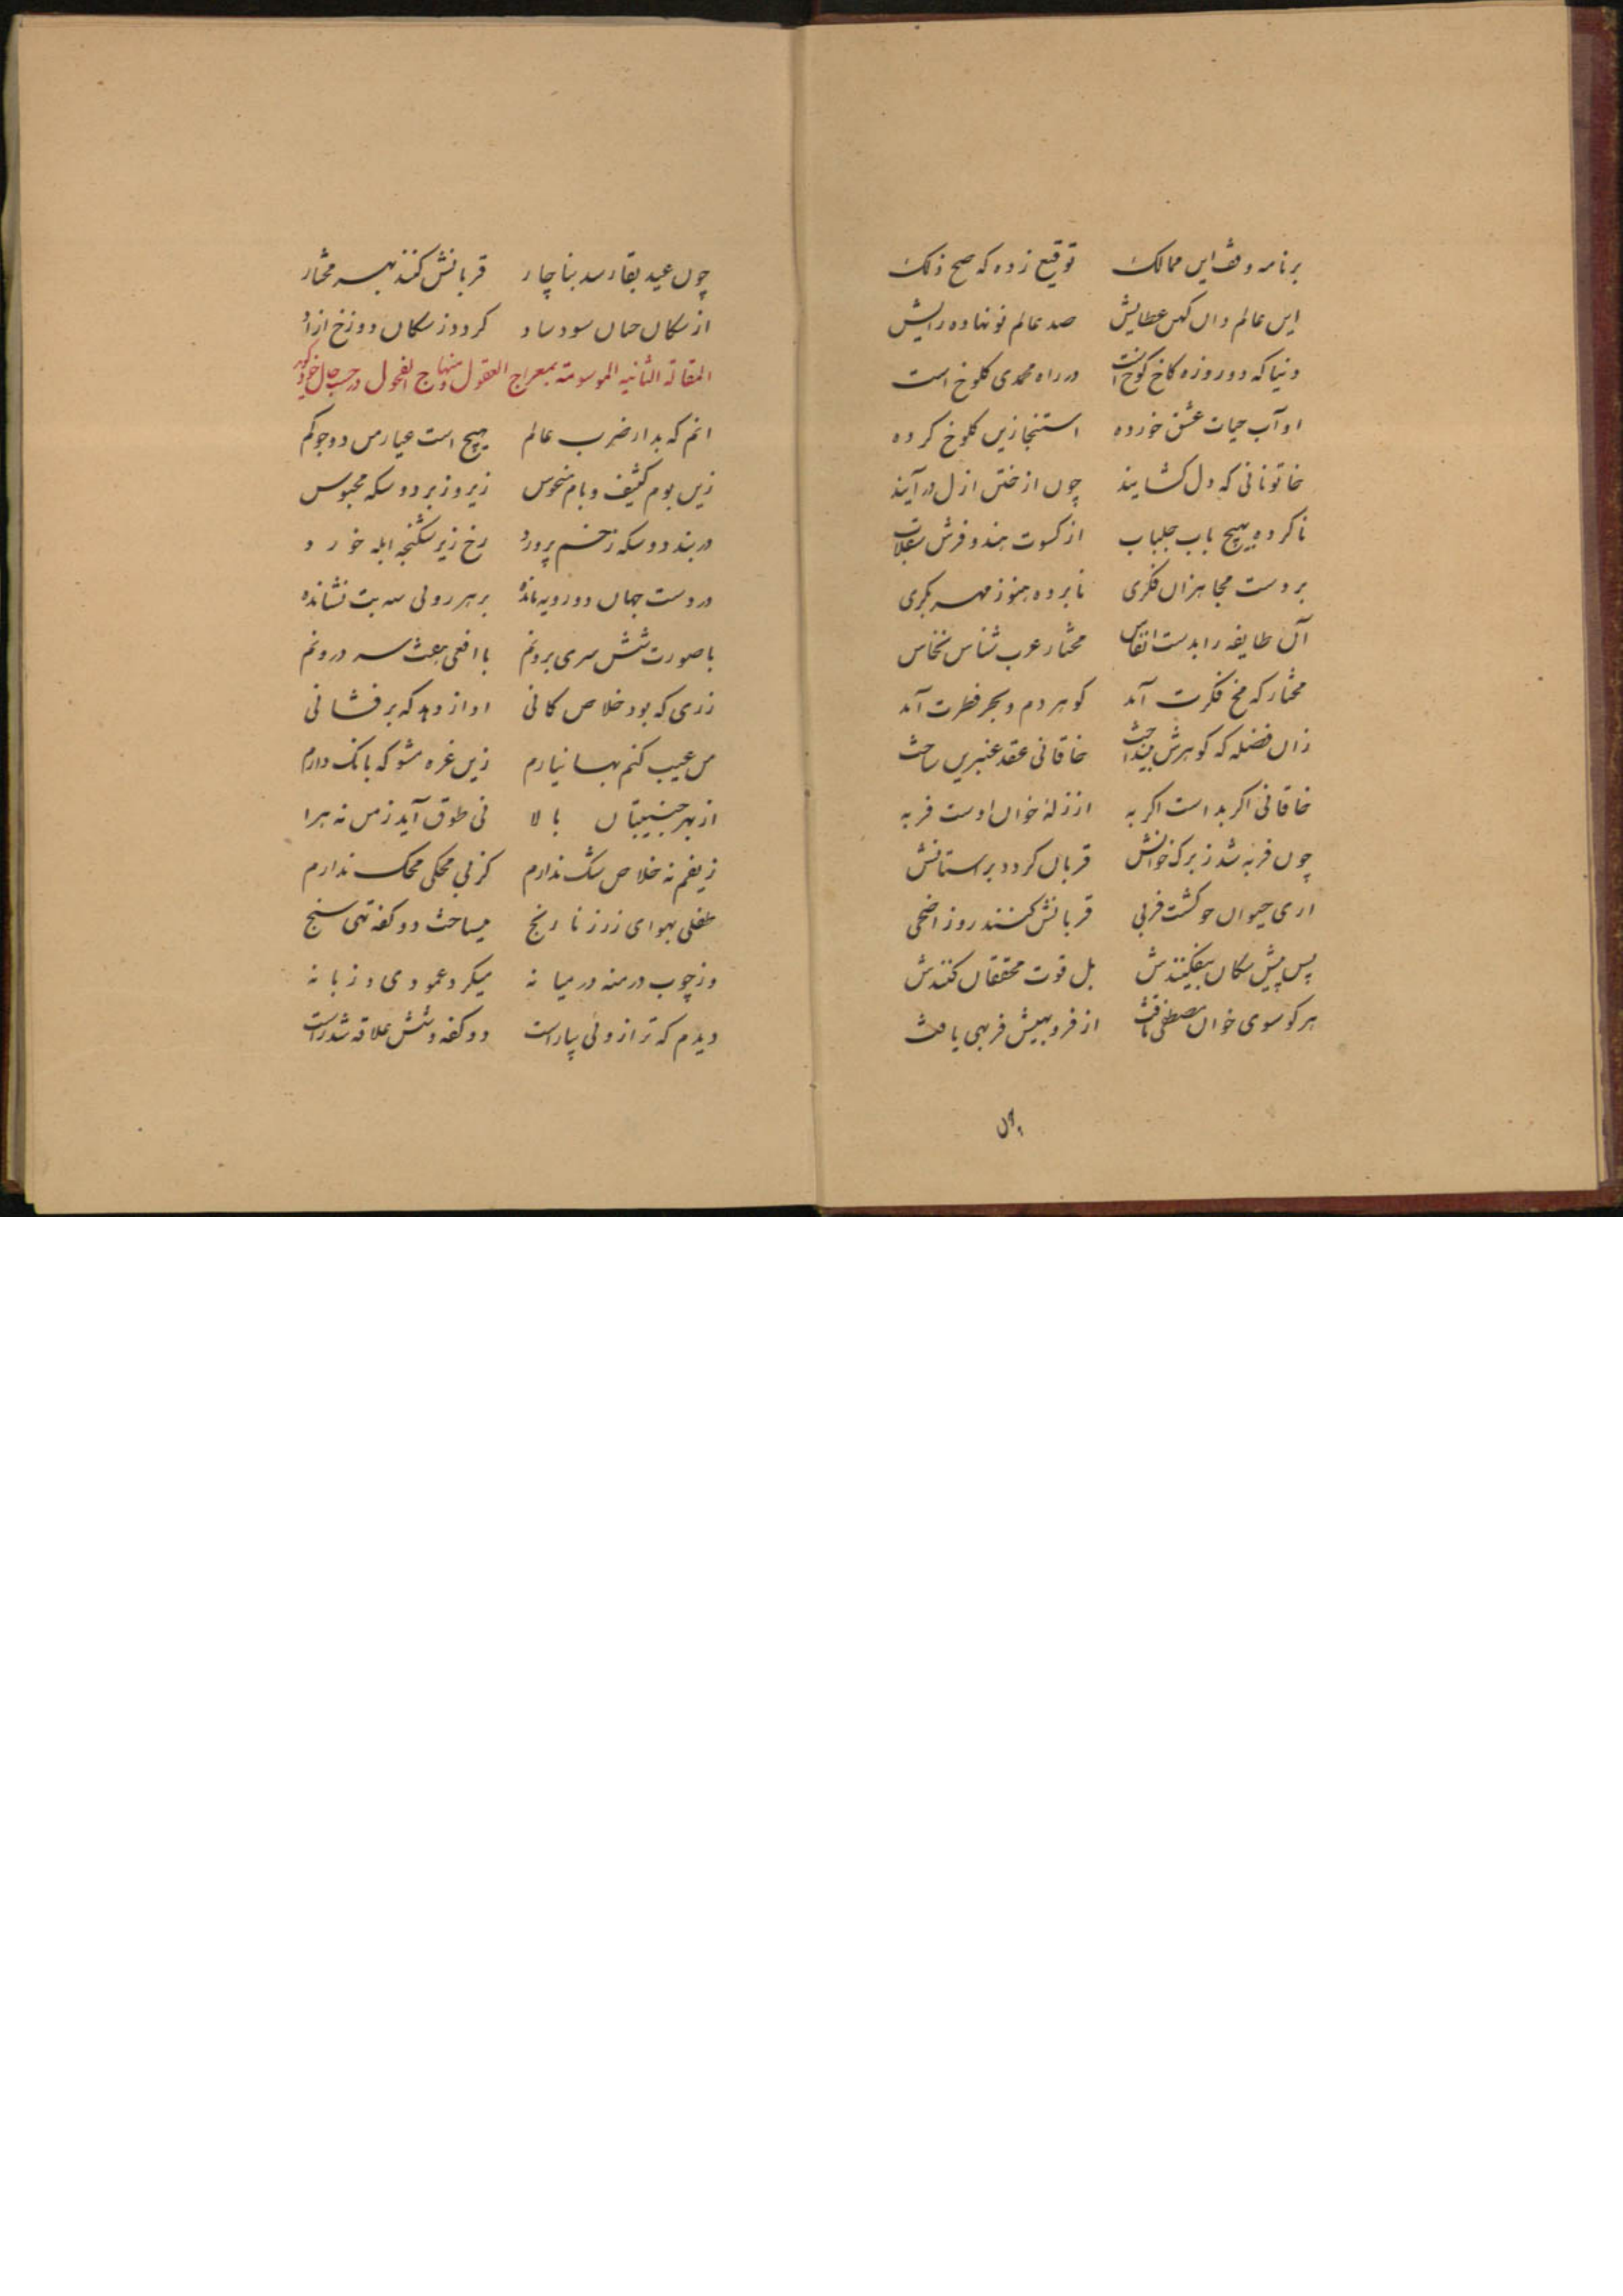 برنامه وقف این ممالک توقیع زده که صح ذلک
این عالم دان کهن عطایش صد عالم نو نهاده رایش
دنیا که دو روزه کاخ کوخ است در راه محمدی کلوخ است
او آب حیات عشق خورده استنجا زین کلوخ کرده
خاتونانی که دل کشایند چون از ختن ازل در آیند
ناکرده بهیچ باب جلباب از کسوت هند و فرش سقلاب
بر دست مجاهزان فکری نابرده هنوز مهر بکری
آن طایفه را بدست انفاس مختار عرب شناس نخاس
مختار که مخ فکرت آمد کوهر دم و بحر فطرت آمد
زان فضله که کوهرش بینداخت خاقانی عقد عنبرین ساخت
خاقانی اکر بد است اکر به از زلهٔ خوان اوست فربه
چون فربه شد ز برک خوانش قربان کردد بر آستانش
اری حیوان چو کشت فربی قربانش کنند روز اضحی
پس پیش سکان بیفکنندش بل قوت محققان کنندش
هر کو سوی خوان مصطفی تافت از فر وبهیش فربهی یافت
چون
چون عید بقا رسد بناچار قربانش کنند بهر مختار
از سکان جنان سود ساد کردد ز سکان دوزخ ازاد
المقالة الثانیه الموسومة بمعراج العقول و منهاج الفحول در حسب حال خود کوید
انم که بدار ضرب عالم هیچ است عیار من دو جو کم
زین بوم کثیف و بام منحوس زیر و زبر دو سکه محبوس
در بند دو سکه زخم پرورد رخ زیر شکنجه ابله خورد
در دست جهان دورویه مانده بر هر روئی سه بت نشانده
با صورت شش سری برونم با افعی بعث سه درونم
زری که بود خلاص کانی اواز دهد که برفشانی
من عیب کنم بها نیارم زین غره مشو که بانک دارم
از بهر جنیبتان بالا نی طوق آید ز من نه هرا
زیفم نه خلاص شک ندارم کز بی محکی محک ندارم
طفلی بهوای زر ز نارنج میساخت دو کفه تهی سنج
وز چوب درمنه در میانه میکرد عمودی و زبانه
دیدم که ترازوئی بیاراست دو کفه و شش علاقه شد راست